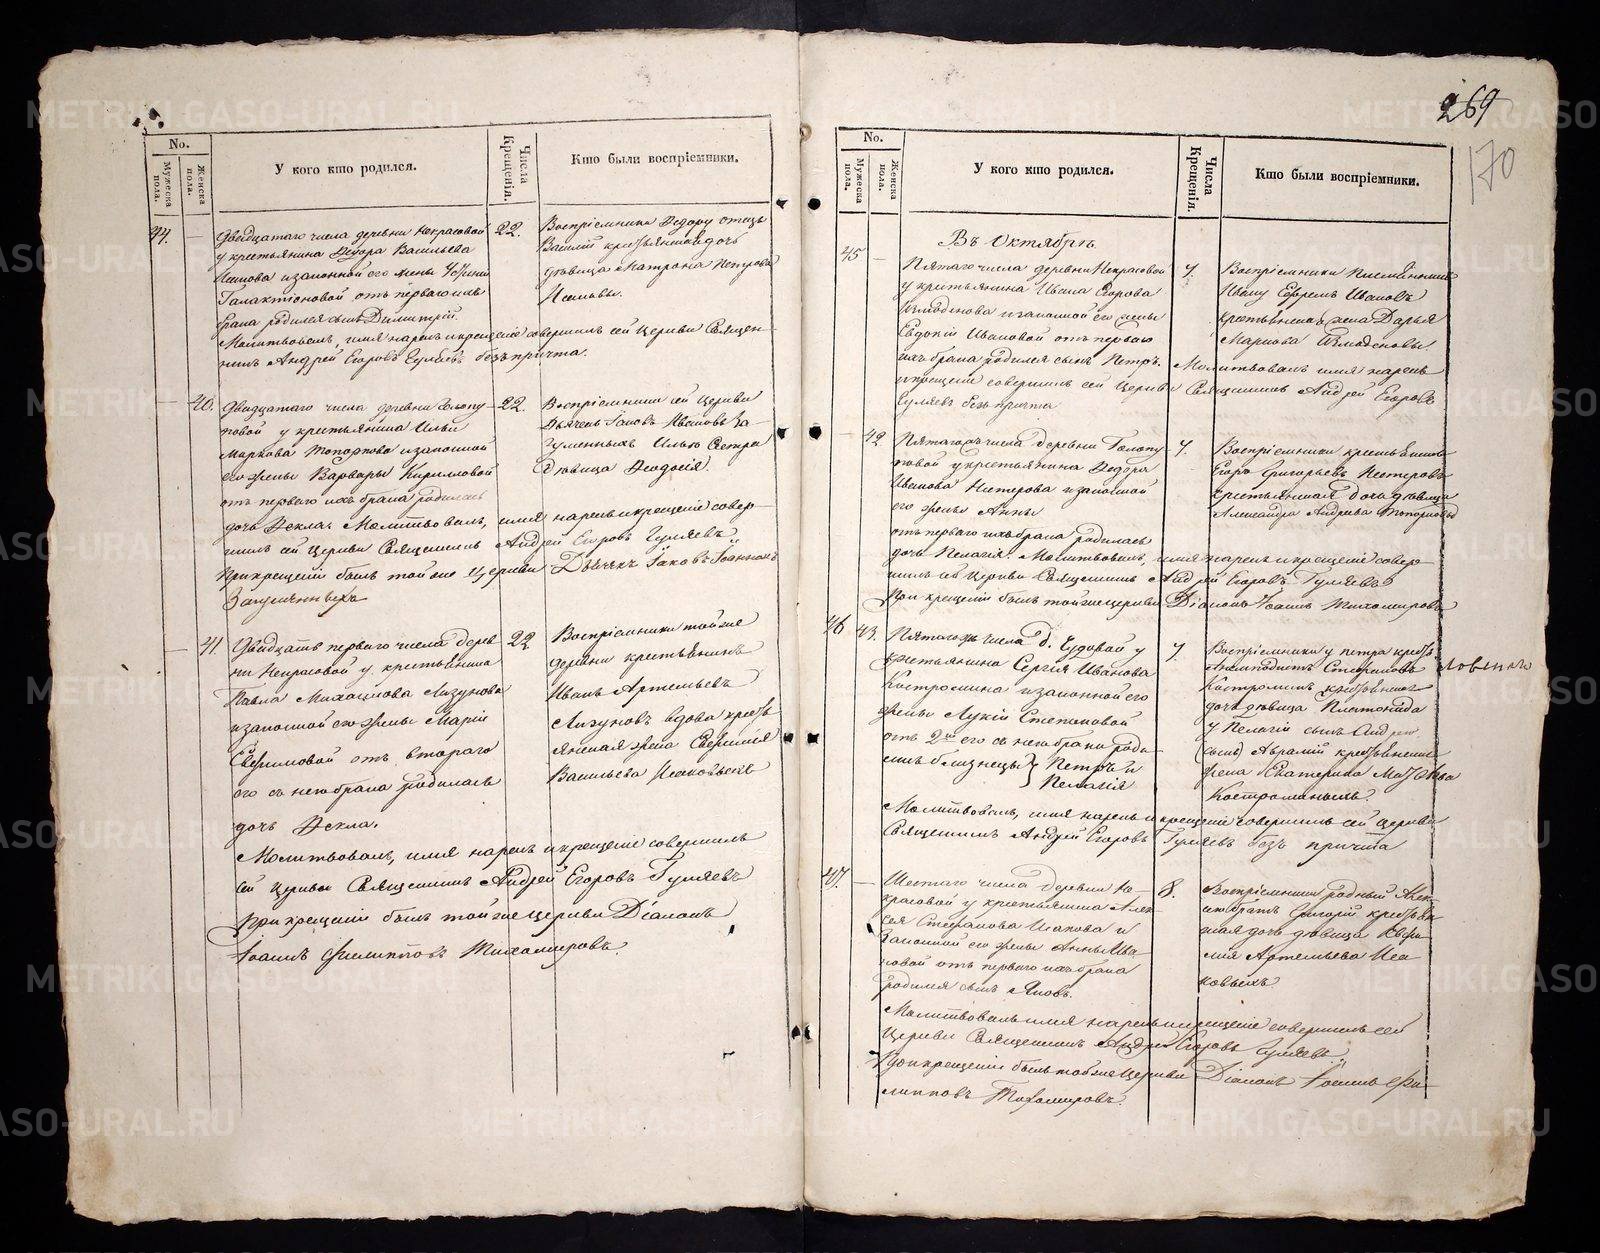 269
170
No.
Мужеска пола.
Женска пола.
У кого кто родился.
Числа Крещенія.
Кто были воспріемники.
44.
Двадцатаго числа деревни Некрасовой
у крестьянина Ѳедора Васильева
и законной его жены
Галактіоновой отъ перваго ихъ
брака родился сынъ Димитрій.
Молитвовалъ, имя нарекъ и крещеніе совершилъ сей Церкви Священ-
никъ Андрей Егоровъ Гуляевъ безъ причта.
22.
Воспріемники Ѳедору отецъ
Василій крестьянская дочь
дѣвица Матрона Петрова
40.
Двадцатаго числа деревни Голопу-
повой у крестьянина Ильи
Маркова Топоркова и законной
его жены Варвары Кирилловой
отъ перваго ихъ брака родилась
дочь Ѳекла. Молитвовалъ, имя нарекъ и крещеніе совер-
шилъ сей Церкви Священникъ Андрей Егоровъ Гуляевъ.
При крещеніи былъ той же Церкви Дьячекъ Іаковъ Іоанновъ
22.
Воспріемники сей Церкви
Дьячекъ Іаковъ Ивановъ
Дѣвица Ѳеодосія.
41.
Двадцать перваго числа дерев-
ни Некрасовой у крестьянина
Павла Михаилова Лизунова
и законной его жены Маріи
Евфимовой отъ втораго
его съ нею брака родилась
дочь Ѳекла.
Молитвовалъ, имя нарекъ и крещеніе совершилъ
сей Церкви Священникъ Андрей Егоровъ Гуляевъ
При крещеніи былъ той же Церкви Діаконъ
Іоаннъ Филипповъ Тихомировъ.
22
Воспріемники той же
деревни крестьянинъ
Иванъ Артемьевъ
Лизуновъ вдова кресть
янская жена
Васильева Исаковыхъ
No.
Мужеска пола.
Женска пола.
У кого кто родился.
Числа Крещенія.
Кто были воспріемники.
Въ Октябрѣ.
45
Пятаго числа деревни Некрасовой
у крестьянина Ивана Егорова
и законной его жены
Евдокіи Ивановой отъ перваго
ихъ брака родился сынъ Петръ. Молитвовалъ имя нарекъ
и крещеніе совершилъ сей Церкви Священникъ Андрей Егоровъ
Гуляевъ безъ причта
7.
Воспріемники
Ивану Ефремъ Ивановъ
крестьянская жена Дарья
Маркова
42
Пятаго числа деревни Голопу
повой у крестьянина Ѳедора
Иванова Нестерова и законной
его жены Анны
отъ перваго ихъ брака родилась
дочь Пелагія. Молитвовалъ, имя нарекъ и крещеніе совер-
шилъ сей Церкви Священникъ Андрей Егоровъ Гуляевъ
При крещеніи былъ той же Церкви Діаконъ Іоаннъ Тихомировъ
7.
Воспріемники крестьянинъ
Егоръ Григорьевъ Нестеровъ
крестьянская дочь дѣвица
Александра Андреева Топоркова
46
43.
Пятаго числа д. Чудовой у
крестьянина Сергія Иванова
Костромина и законной его
жены Лукіи Степановой
отъ 2го его съ нею брака роди-
лись близнецы} Петръ и
Пелагія
Молитвовалъ, имя нарекъ и крещеніе совершилъ сей Церкви
Священникъ Андрей Егоровъ Гуляевъ безъ причта
7.
Воспріемники у Петра кресть
Костроминъ крестьянская
дочь дѣвица Платонида
у Пелагіи сынъ Андрей
(сынъ) Авраамій крестьянская
жена Екатерина
Костроминыхъ.
47.
Шестаго числа деревни Не-
красовой у крестьянина Алек-
сея Стефанова Исакова и
законной его жены Анны Ива-
новой отъ перваго ихъ брака
родился сынъ Іаковъ.
Молитвовалъ имя нарекъ и крещеніе совершилъ сей
Церкви Священникъ Андрей Егоровъ Гуляевъ.
При крещеніи былъ той же Церкви Діаконъ Іоаннъ Фи-
липповъ Тихомировъ.
8.
Воспріемники родный Алек-
сію братъ Григорій крестьян-
ская дочь дѣвица Евфи-
мія Артемьева Иса
ковыхъ
METRIKI.GASO-URAL.RU